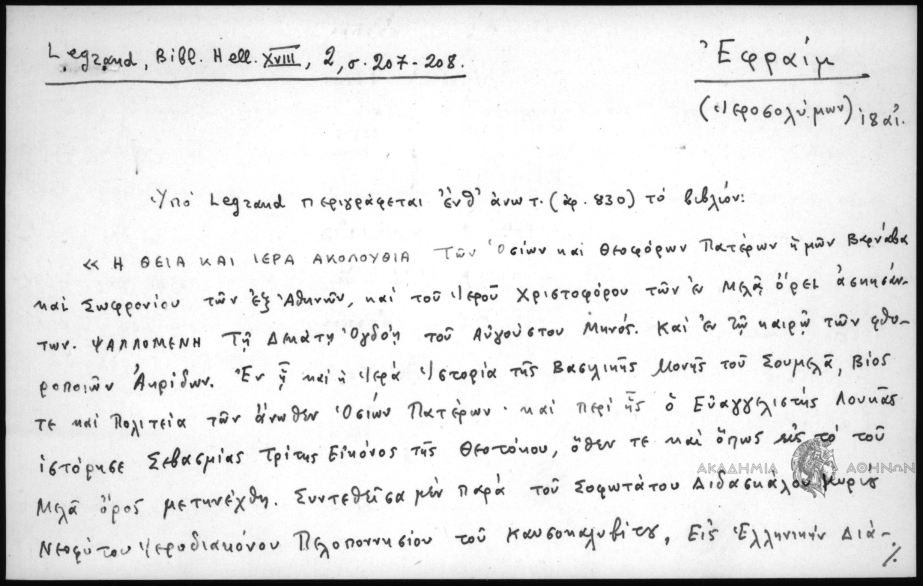 Legrand, Bibl. Hell. XVIII, 2, σ. 207-208.
Ἐφραίμ
(Ἱεροσολύμων) ιθαί.
Ὑπό Legrand περιγράφεται ἐνθ' ἀνωτ. (ἀρ. 830) τό βιβλίον:
« Η ΘΕΙΑ ΚΑΙ ΙΕΡΑ ΑΚΟΛΟΥΘΙΑ Τῶν Ὁσίων καί Θεοφόρων Πατέρων ἡμῶν Βαρνάβα
καί Σωφρονίου τῶν ἐξ Ἀθηνῶν, καί τοῦ Ἱεροῦ Χριστοφόρου τῶν ἐν Μελᾷ ὄρει ἀσκησάν-
των. ΨΑΛΛΟΜΕΝΗ Τῇ Δεκάτῃ Ὀγδόῃ τοῦ Αὐγούστου Μηνός. Καί ἐν τῷ καιρῷ τῶν φθο-
ροποιῶν Ἀκρίδων. Ἐν ᾗ καί ἡ Ἱερά Ἱστορία τῆς Βασιλικῆς Μονῆς τοῦ Σουμελᾶ, Βίος
τε καί Πολιτεία τῶν ἄνωθεν Ὁσίων Πατέρων · καί περί ἧς ὁ Εὐαγγελιστής Λουκᾶς
ἱστόρησε Σεβασμίας Τρίτης Εἰκόνος τῆς Θεοτόκου, ὅθεν τε καί ὅπως εἰς τό τοῦ
Μελᾶ ὄρος μετηνέχθη. Συντεθεῖσα μέν παρά τοῦ Σοφωτάτου Διδασκάλου Κυρίου
Νεοφύτου Ἱεροδιακόνου Πελοποννησίου τοῦ Καυσοκαλυβίτου, Εἰς Ἑλληνικήν Διά-
./.
ΑΚΑΔΗΜΙΑ ΑΘΗΝΩΝ